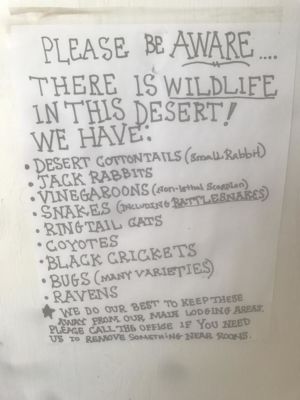 PLEASE BE AWARE....
THERE IS WILDLIFE
IN THIS DESERT!
WE HAVE:
• DESERT COTTONTAILS (small Rabbit)
• JACK RABBITS
• VINEGAROONS (Non-lethal Scorpion)
• SNAKES (INCLUDING RATTLESNAKES)
• RINGTAIL CATS
• COYOTES
• BLACK CRICKETS
• BUGS (MANY VARIETIES)
• RAVENS
★ WE DO OUR BEST TO KEEP THESE
AWAY FROM OUR MAIN LODGING AREAS.
PLEASE CALL THE OFFICE IF YOU NEED
US TO REMOVE SOMETHING NEAR ROOMS.